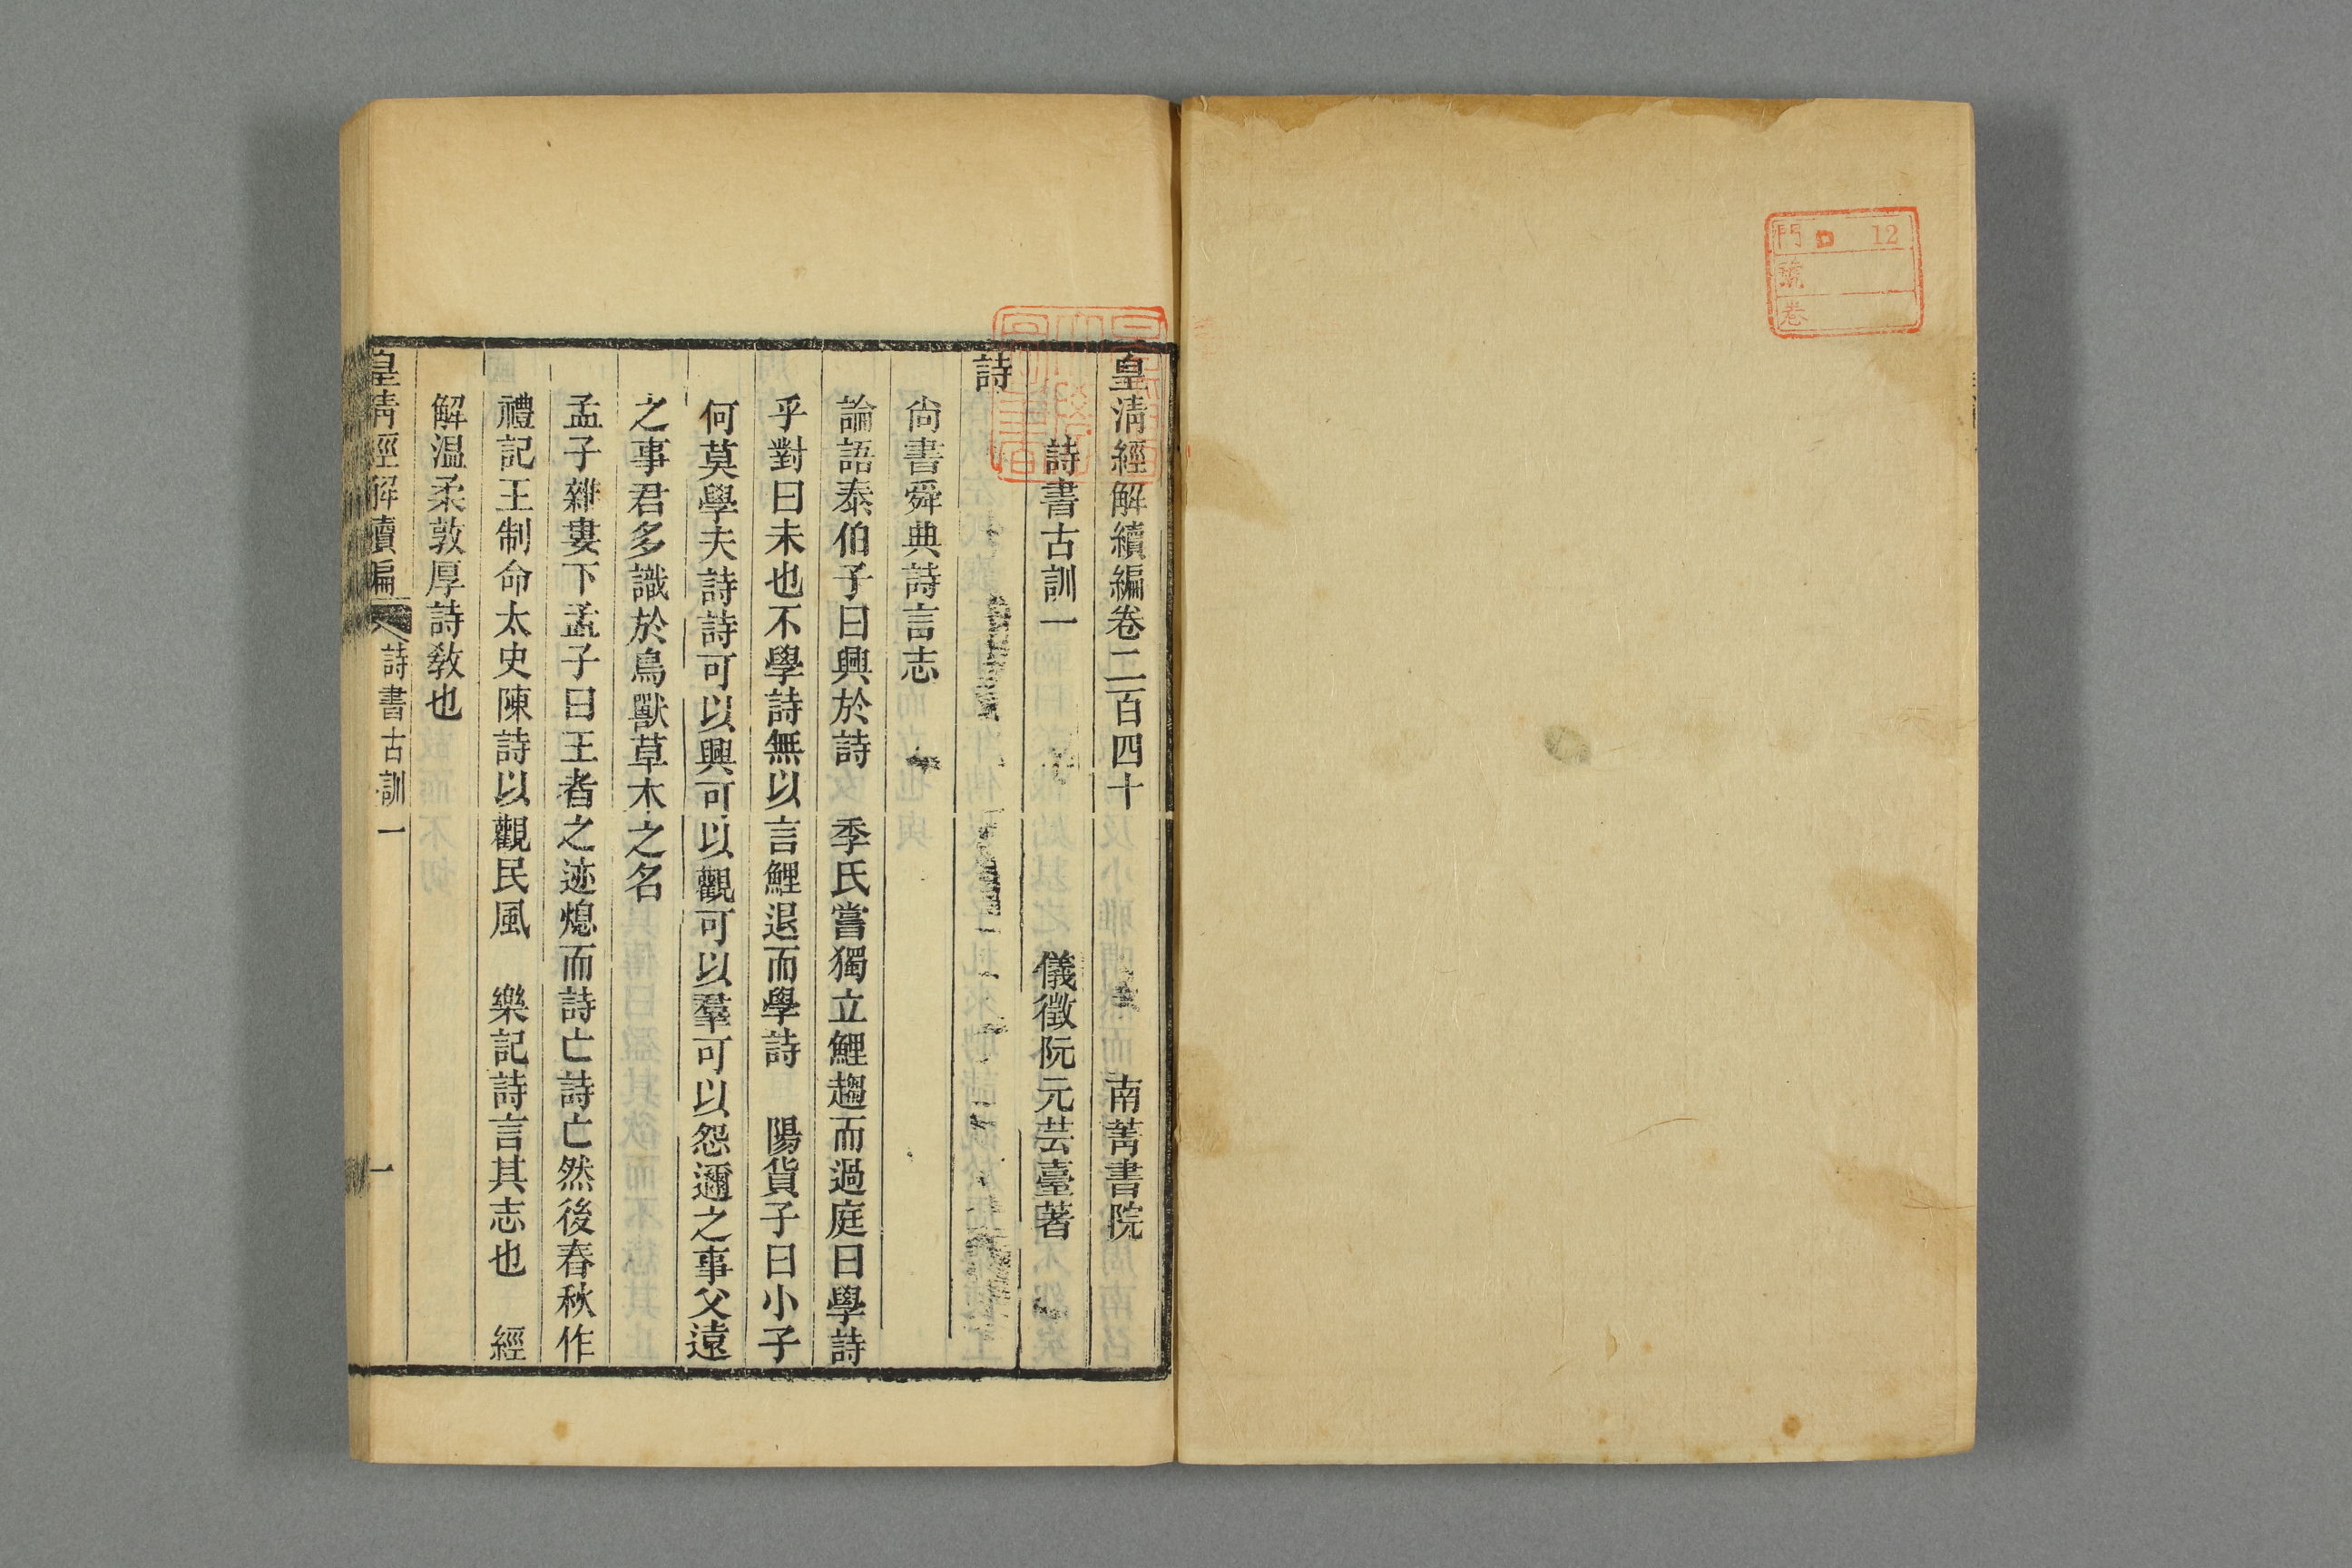 門 12
號
卷
皇淸經解續編卷二百四十 南菁書院
詩書古訓一 儀徵阮元芸臺著
詩
尙書舜典詩言志
論語泰伯子曰興於詩 季氏嘗獨立鯉趨而過庭曰學詩
乎對曰未也不學詩無以言鯉退而學詩 陽貨子曰小子
何莫學夫詩詩可以興可以觀可以羣可以怨邇之事父遠
之事君多識於鳥獸草木之名
孟子離婁下孟子曰王者之迹熄而詩亡詩亡然後春秋作
禮記王制命太史陳詩以觀民風 樂記詩言其志也 經
解溫柔敦厚詩敎也
皇淸經解續編 詩書古訓一 一